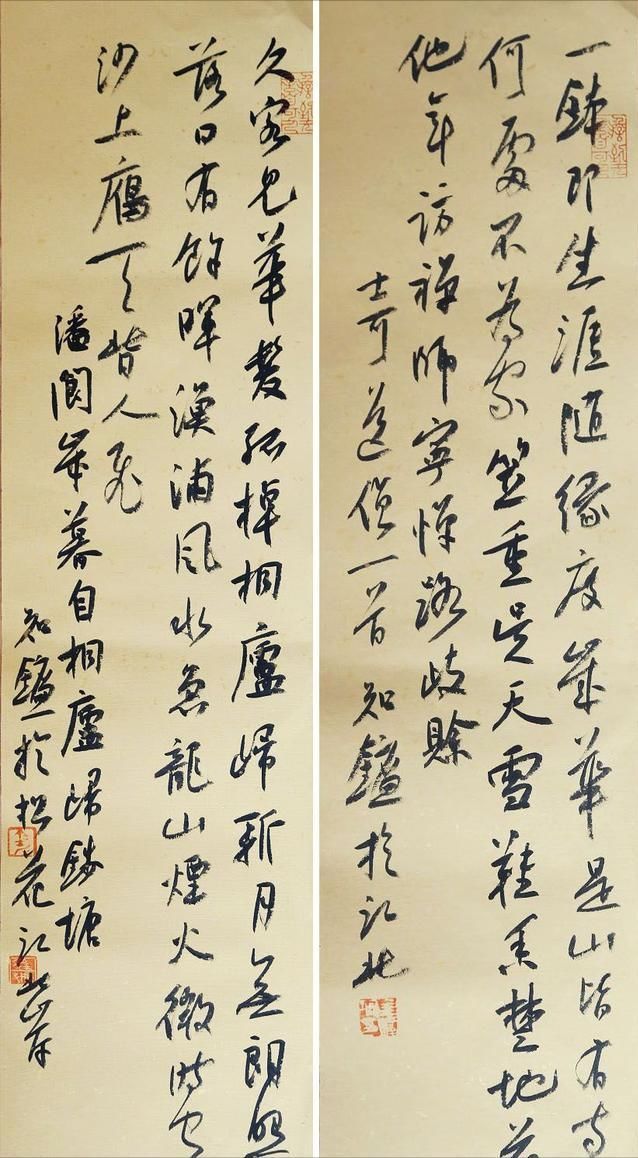 一鉢即生涯隨緣度歲華是山皆有寺
何處不為家笠重吳天雪鞋香楚地花
他年訪禪師寧憚路歧賒
士可送僧一首 知鑣於江北
久客見華髮孤棹桐廬歸新月無朗照
落日有餘暉漁浦風水急龍山煙火微時聞
沙上雁一一皆人飛
潘閬歲暮自桐廬歸錢塘
知鑣於松花江北岸